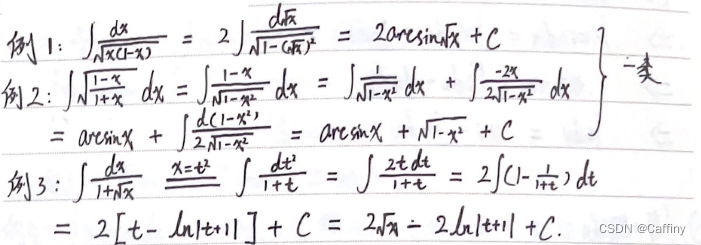 例1: ∫ dx/√(x(1-x)) = 2∫ d√x/√(1-(√x)²) = 2arcsin√x + C
例2: ∫ √((1-x)/(1+x)) dx = ∫ (1-x)/√(1-x²) dx = ∫ 1/√(1-x²) dx + ∫ -2x/(2√(1-x²)) dx } 一类
= arcsinx + ∫ d(1-x²)/(2√(1-x²)) = arcsinx + √(1-x²) + C
例3: ∫ dx/(1+√x) x=t² ∫ dt²/(1+t) = ∫ 2t dt/(1+t) = 2∫(1- 1/(1+t)) dt
= 2[t - ln|t+1|] + C = 2√x - 2ln|t+1| + C.
CSDN @Caffiny